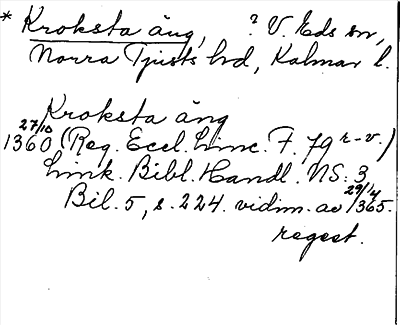 * Kroksta äng, ? V. Eds sn,
Norra Tjusts hd, Kalmar l.
Kroksta äng
27/10 1360 (Reg. Eccl. Linc. F. 79 r-v.)
Link. Bibl. Handl. NS: 3
Bil. 5, s. 224. vidim. av 29/4 1365.
regest.